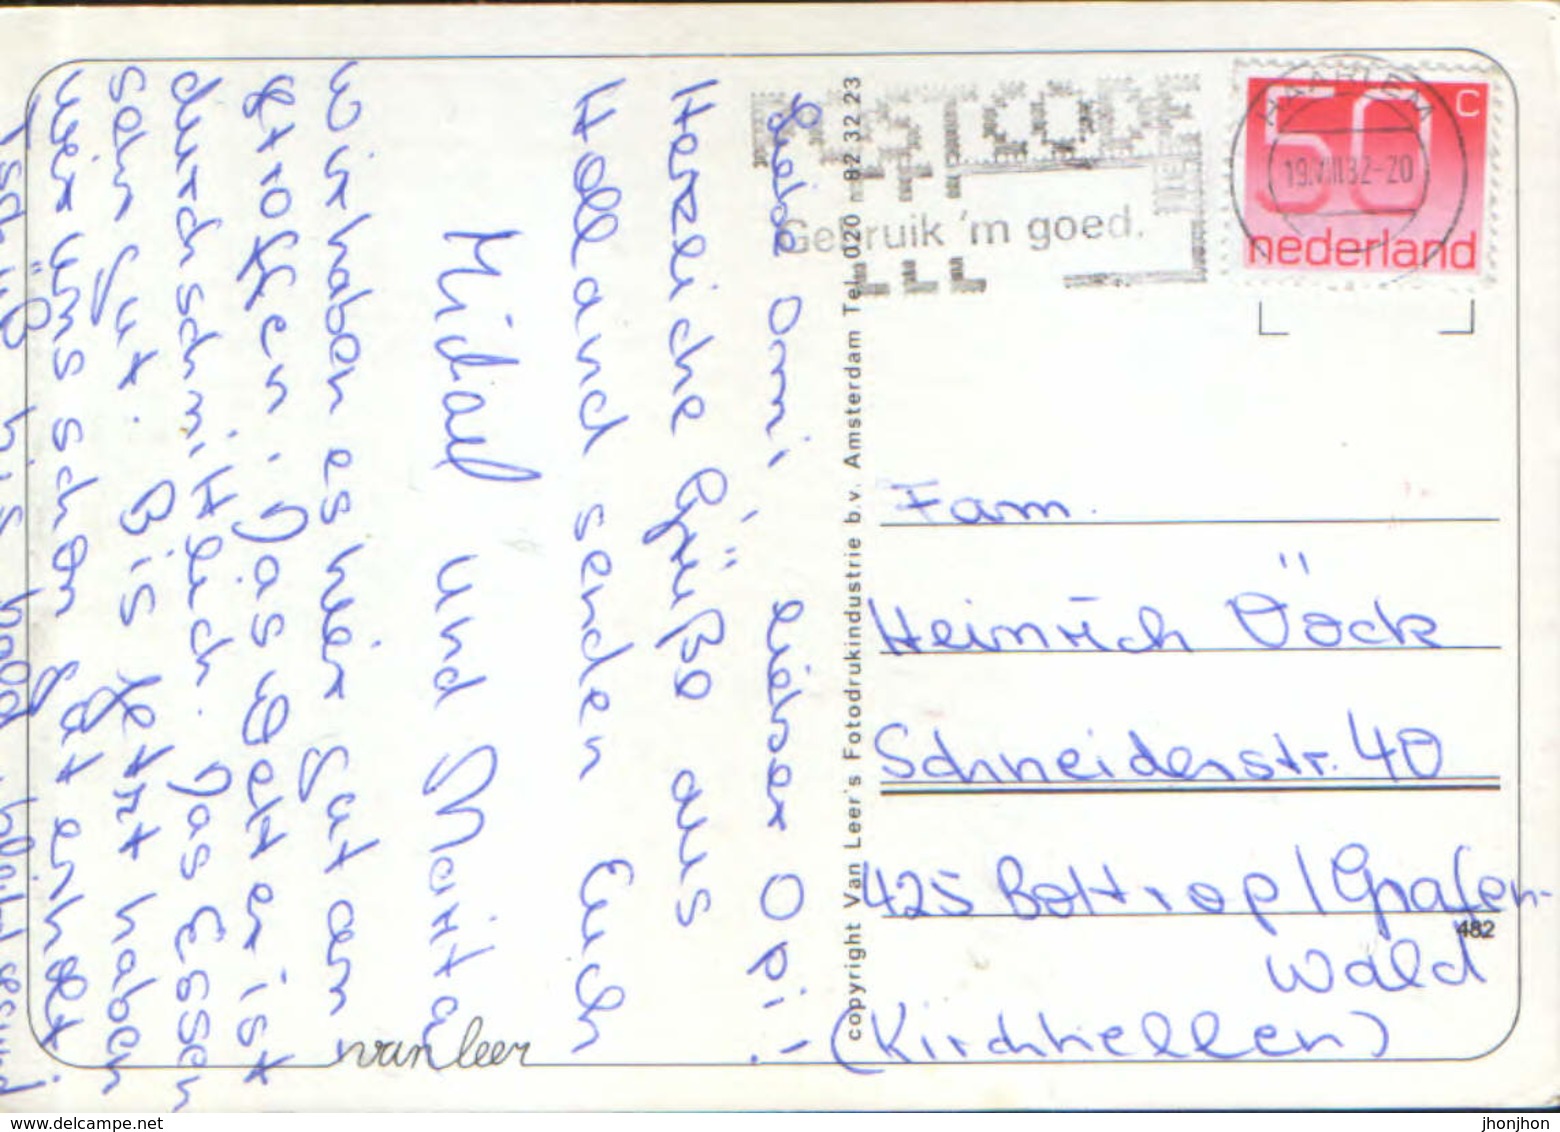 Liebe Omi, lieber Opi!
Herzliche Grüße aus
Holland senden Euch
Michael und Marita
Wir haben es hier gut an-
getroffen. Das Wetter ist
durchschnittlich. Das Essen
sehr gut. Bis jetzt haben
wir uns schon gut erholt
Tschüß bis bald, bleibt gesund
van leer
copyright Van Leer's Fotodrukindustrie b.v. Amsterdam Tel. 020 - 82 32 23
POSTCODE
Gebruik 'm goed.
HAARLEM
19.VIII.82-20
50 c
nederland
Fam.
Heinrich Döck
Schneiderstr. 40
425 Bottrop / Grafen-
wald
(Kirchhellen)
482
delcampe.net
jhonjhon